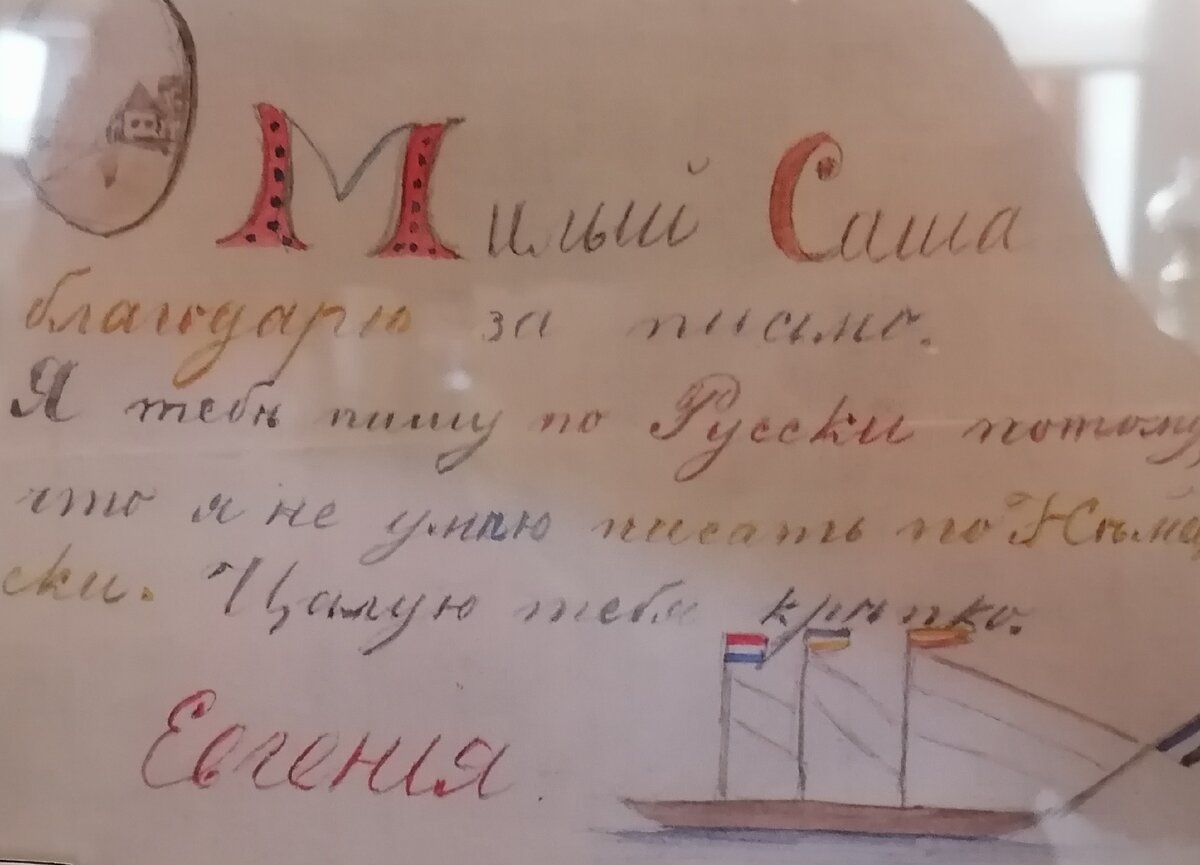 Милый Саша
благодарю за письмо.
Я тебѣ пишу по Русски потому,
что я не умѣю писать по Нѣме
ски. Цалую тебя крѣпко.
Евгенія.